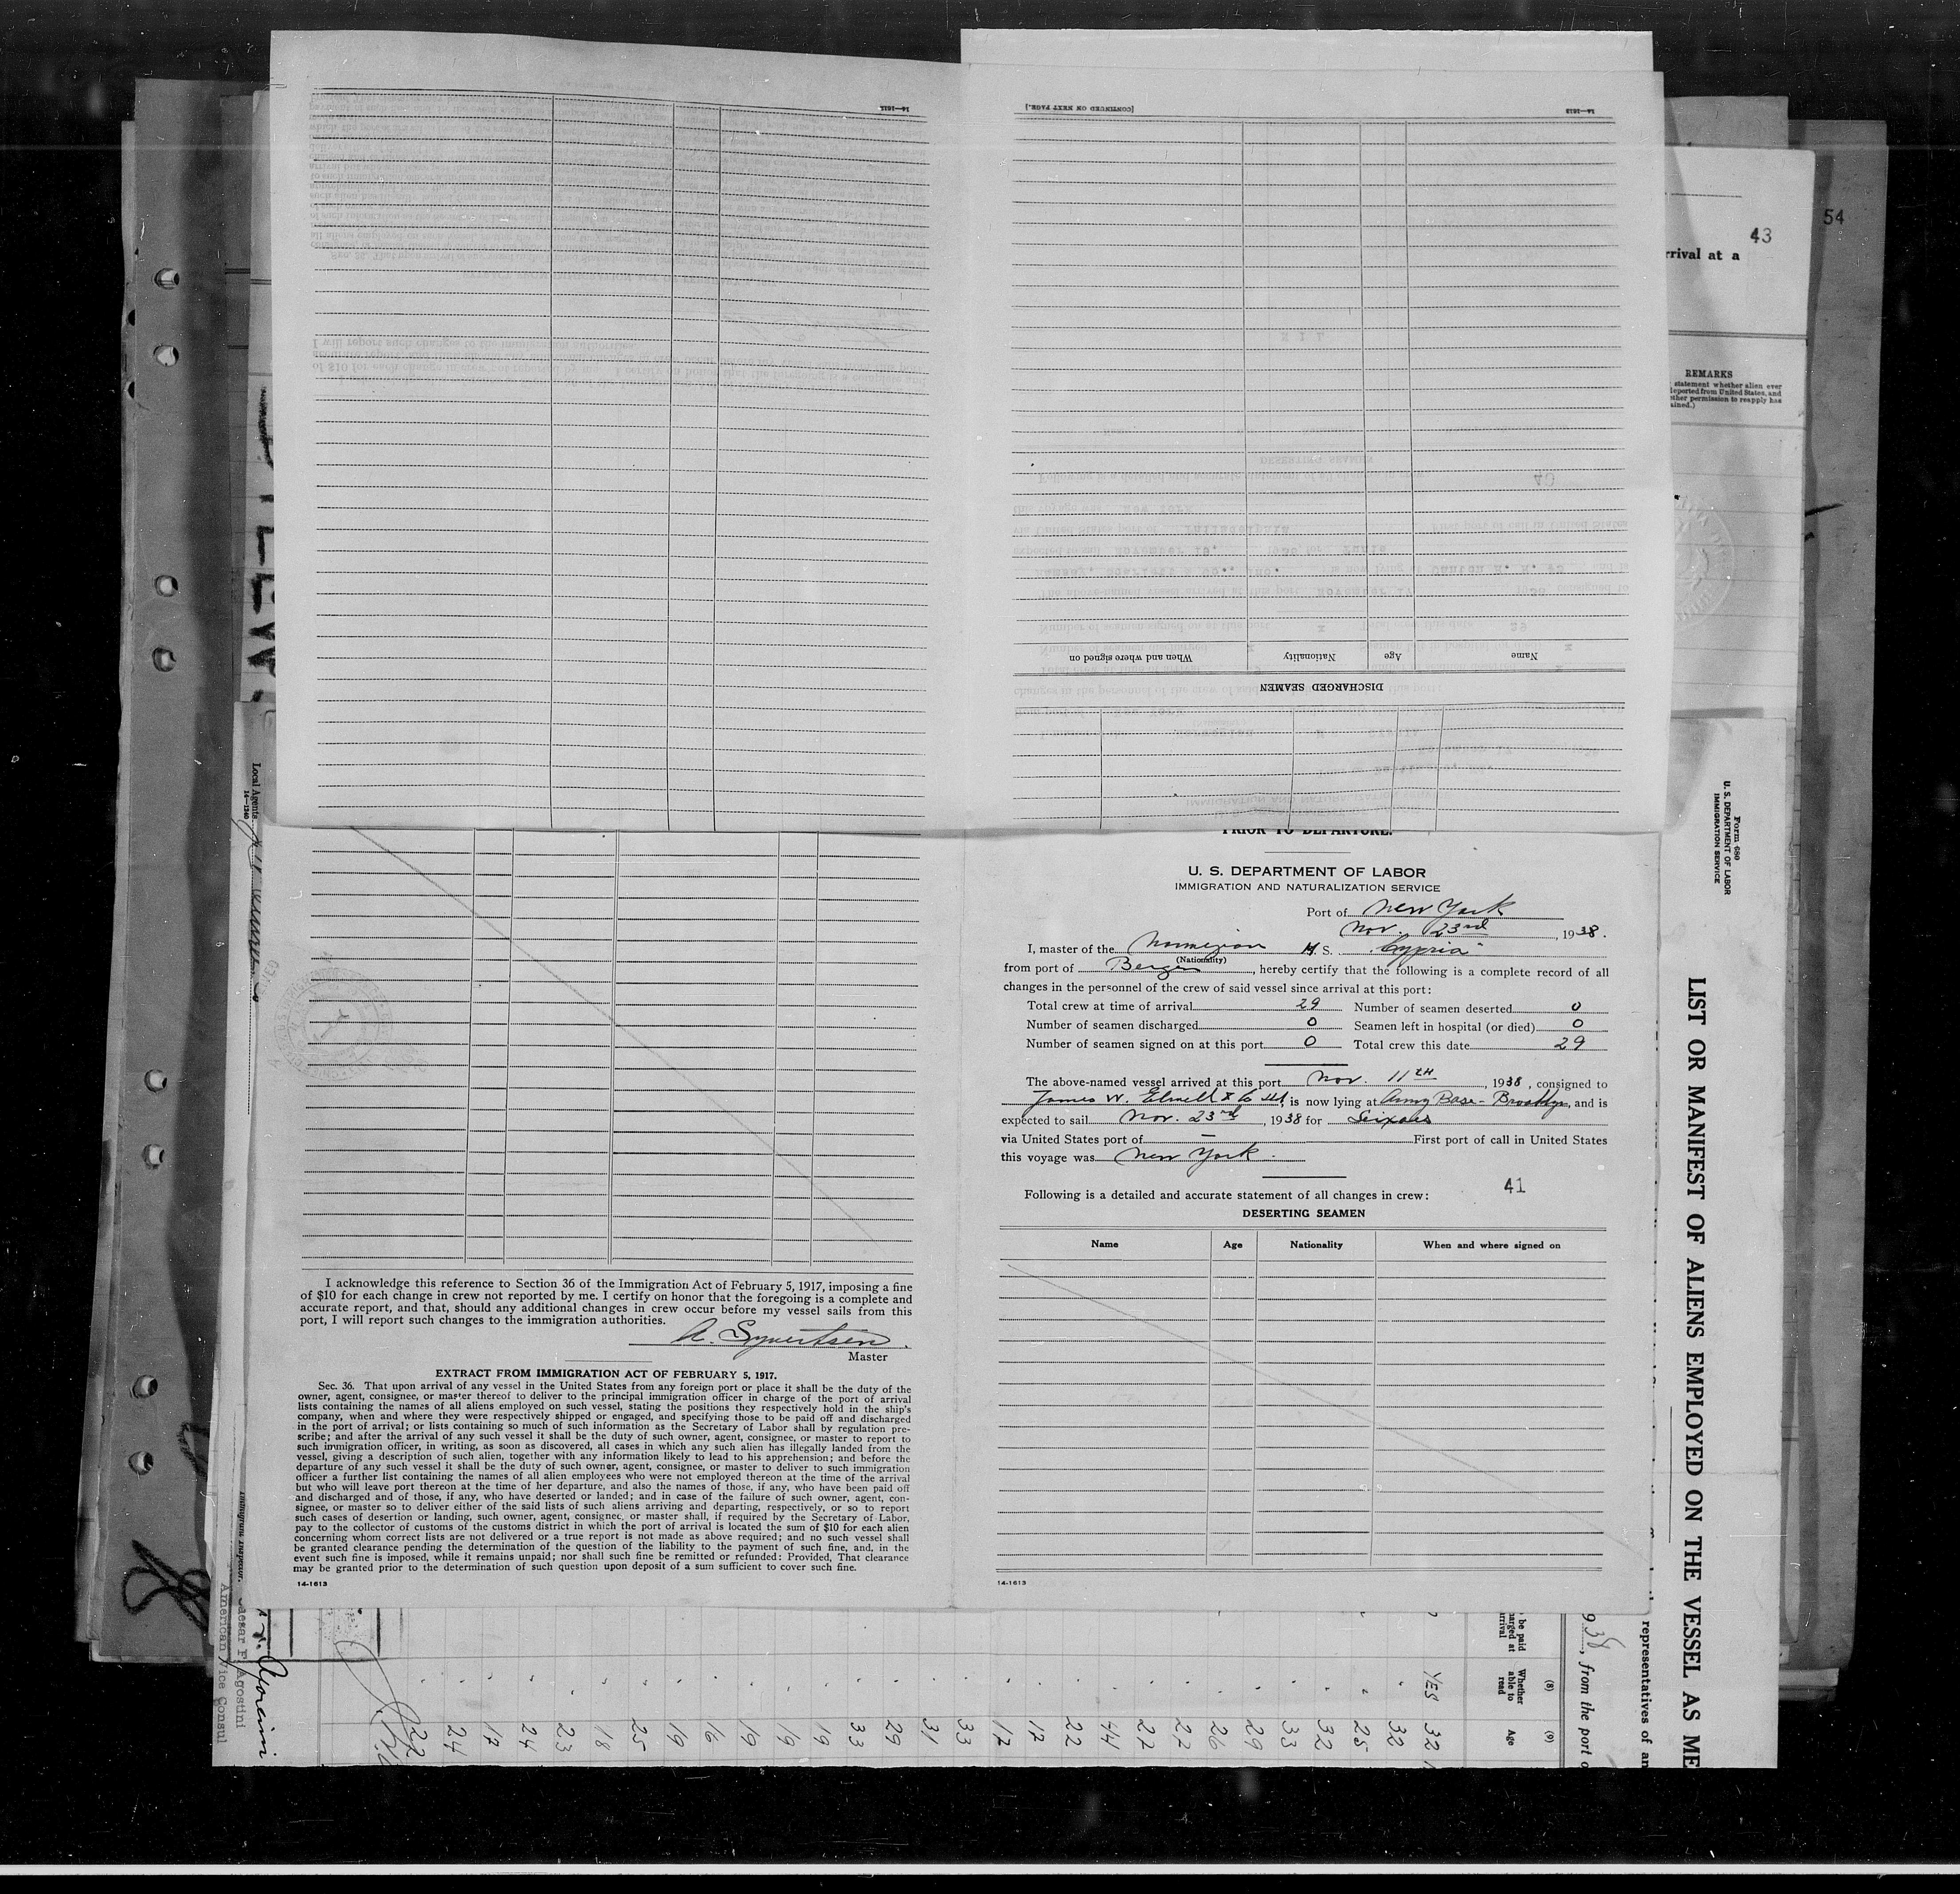 14—1611
[CONTINUED ON NEXT PAGE.]
14—1612
Name
Age
Nationality
When and where signed on
DISCHARGED SEAMEN
54
43
rrival at a
REMARKS
statement whether alien ever
deported from United States, and
ether permission to reapply has
ained.)
PRIOR TO DEPARTURE.
U. S. DEPARTMENT OF LABOR
IMMIGRATION AND NATURALIZATION SERVICE
Port of New York
Nov. 23rd, 1938.
I, master of the Norwegian M. S. "Cypria"
(Nationality)
from port of Bergen, hereby certify that the following is a complete record of all
changes in the personnel of the crew of said vessel since arrival at this port:
Total crew at time of arrival 29 Number of seamen deserted 0
Number of seamen discharged 0 Seamen left in hospital (or died) 0
Number of seamen signed on at this port 0 Total crew this date 29
The above-named vessel arrived at this port Nov. 11TH, 1938, consigned to
James W. Elwell & Co, is now lying at Army Base - Brooklyn, and is
expected to sail Nov. 23rd, 1938 for Leixoes
via United States port of — First port of call in United States
this voyage was New York.
Following is a detailed and accurate statement of all changes in crew: 41
DESERTING SEAMEN
Name Age Nationality When and where signed on
14-1613
I acknowledge this reference to Section 36 of the Immigration Act of February 5, 1917, imposing a fine
of $10 for each change in crew not reported by me. I certify on honor that the foregoing is a complete and
accurate report, and that, should any additional changes in crew occur before my vessel sails from this
port, I will report such changes to the immigration authorities.
A. Syvertsen
Master
EXTRACT FROM IMMIGRATION ACT OF FEBRUARY 5, 1917.
Sec. 36. That upon arrival of any vessel in the United States from any foreign port or place it shall be the duty of the
owner, agent, consignee, or master thereof to deliver to the principal immigration officer in charge of the port of arrival
lists containing the names of all aliens employed on such vessel, stating the positions they respectively hold in the ship's
company, when and where they were respectively shipped or engaged, and specifying those to be paid off and discharged
in the port of arrival; or lists containing so much of such information as the Secretary of Labor shall by regulation pre-
scribe; and after the arrival of any such vessel it shall be the duty of such owner, agent, consignee, or master to report to
such immigration officer, in writing, as soon as discovered, all cases in which any such alien has illegally landed from the
vessel, giving a description of such alien, together with any information likely to lead to his apprehension; and before the
departure of any such vessel it shall be the duty of such owner, agent, consignee, or master to deliver to such immigration
officer a further list containing the names of all alien employees who were not employed thereon at the time of the arrival
but who will leave port thereon at the time of her departure, and also the names of those, if any, who have been paid off
and discharged and of those, if any, who have deserted or landed; and in case of the failure of such owner, agent, con-
signee, or master so to deliver either of the said lists of such aliens arriving and departing, respectively, or so to report
such cases of desertion or landing, such owner, agent, consignee, or master shall, if required by the Secretary of Labor,
pay to the collector of customs of the customs district in which the port of arrival is located the sum of $10 for each alien
concerning whom correct lists are not delivered or a true report is not made as above required; and no such vessel shall
be granted clearance pending the determination of the question of the liability to the payment of such fine, and, in the
event such fine is imposed, while it remains unpaid; nor shall such fine be remitted or refunded: Provided, That clearance
may be granted prior to the determination of such question upon deposit of a sum sufficient to cover such fine.
14-1613
Form 680
U. S. DEPARTMENT OF LABOR
IMMIGRATION SERVICE
LIST OR MANIFEST OF ALIENS EMPLOYED ON THE VESSEL AS ME
representatives of an
938, from the port o
(8) (9)
be paid
arged at
arrival
Whether
able to
read
Age
YES 32
32
25
32
33
29
26
22
22
44
22
17
17
33
31
29
33
19
19
19
16
19
25
18
23
24
17
24
22
Local Agents
14—1240
Immigrant Inspector.
Caesar P. Agostini
American Vice Consul